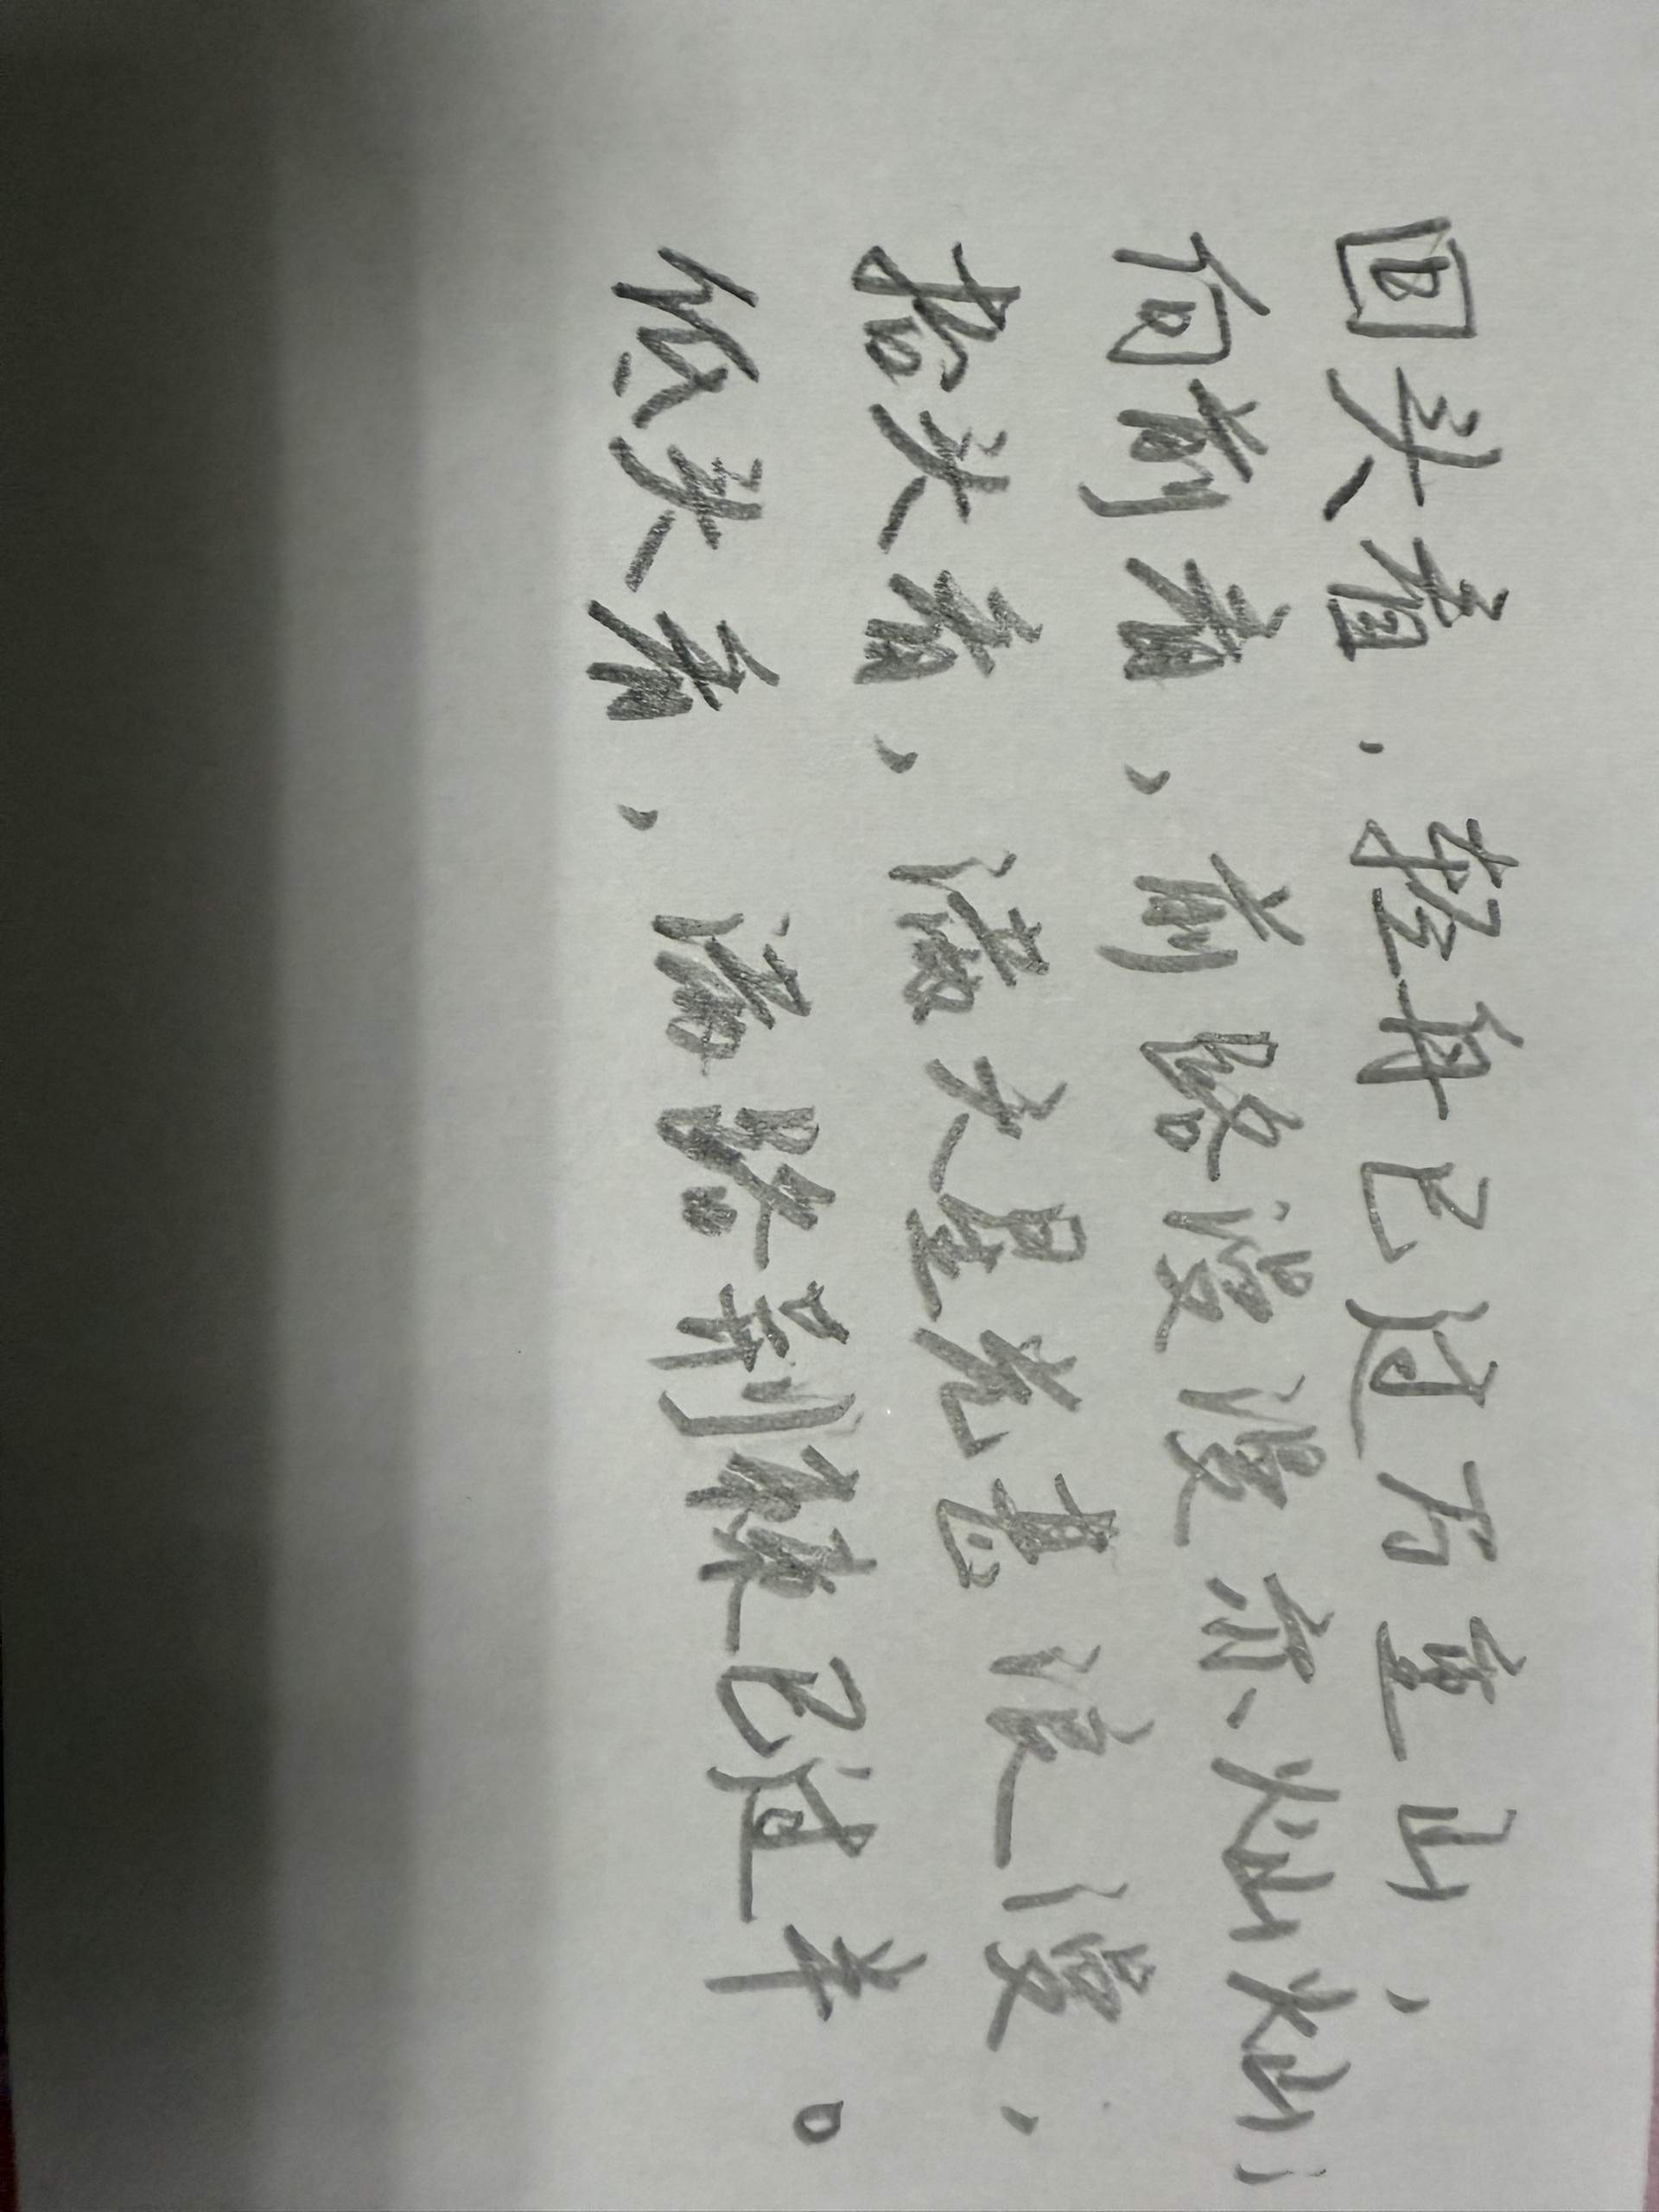 回头看，轻舟已过万重山，
向前看，前路漫漫亦灿灿；
抬头看，满天星光甚浪漫，
低头看，满路荆棘已过半。